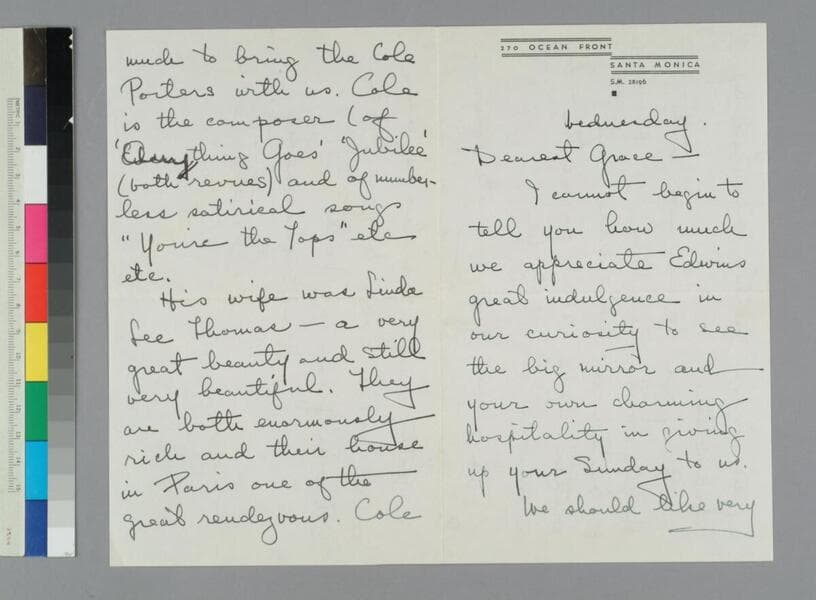 270 OCEAN FRONT
SANTA MONICA
S.M. 28196
Wednesday.
Dearest Grace —
I cannot begin to
tell you how much
we appreciate Edwins
great indulgence in
our curiosity to see
the big mirror and
your own charming
hospitality in giving
up your Sunday to us.
We should like very
much to bring the Cole
Porters with us. Cole
is the composer (of
'Everything Goes' 'Jubilee'
(both revues) and of number-
less satirical songs
"You're the Tops" etc
etc.
His wife was Linda
Lee Thomas — a very
great beauty and still
very beautiful. They
are both enormously
rich and their house
in Paris one of the
great rendezvous. Cole